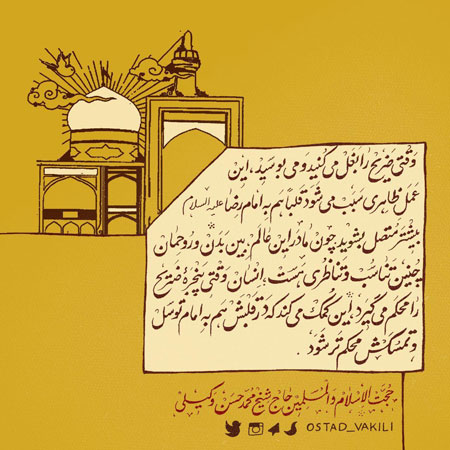 وقتی ضریح را بغل می‌کنید و می‌بوسید، این
عمل ظاهری سبب می‌شود قلباً هم به امام رضا علیه‌السلام
بیشتر متصل بشوید چون ما در این عالم بین بدن و روحمان
چنین تناسب و تناظری هست، انسان وقتی پنجرهٔ ضریح
را محکم می‌گیرد، این کمک می‌کند که در قلبش هم به امام توسل
و تمسکش محکم‌تر شود.
حجت الاسلام والمسلمین حاج شیخ محمد حسن وکیلی
OSTAD_VAKILI